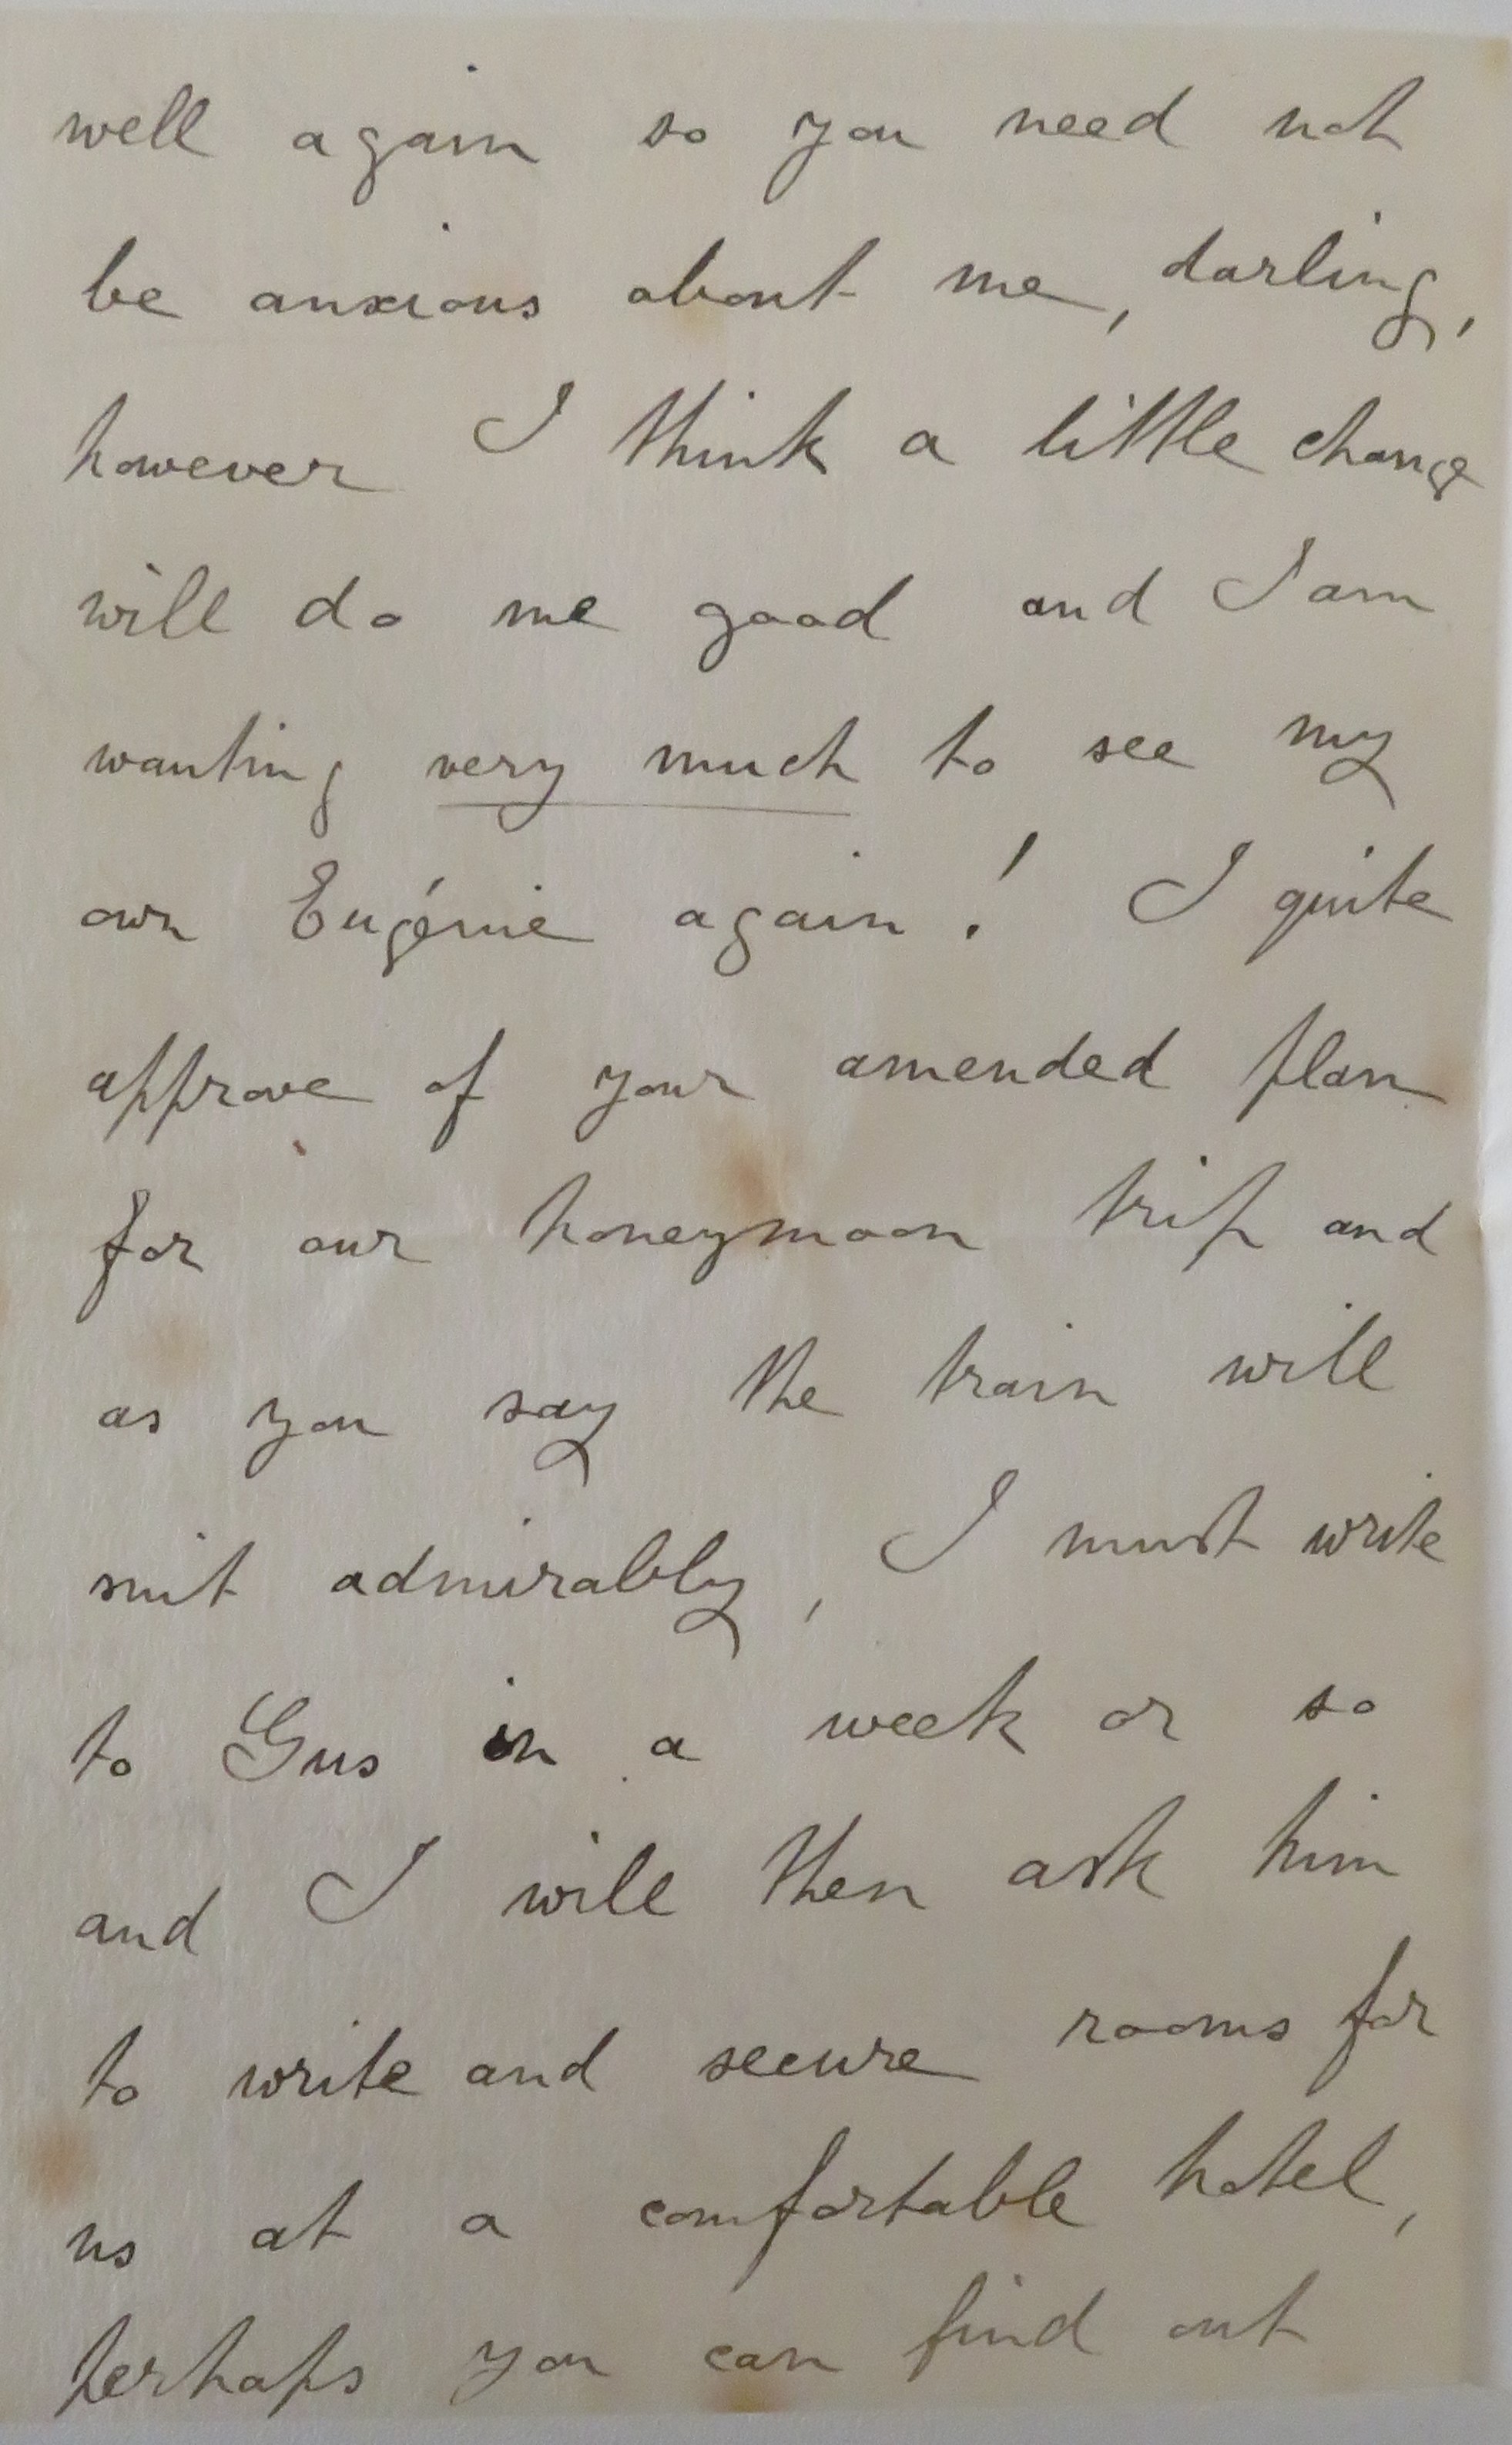 well again so you need not
be anxious about me, darling,
however I think a little change
will do me good and I am
wanting very much to see my
own Eugénie again! I quite
approve of your amended plan
for our honeymoon trip and
as you say the train will
suit admirably, I must write
to Gus in a week or so
and I will then ask him
to write and secure rooms for
us at a comfortable hotel,
perhaps you can find out